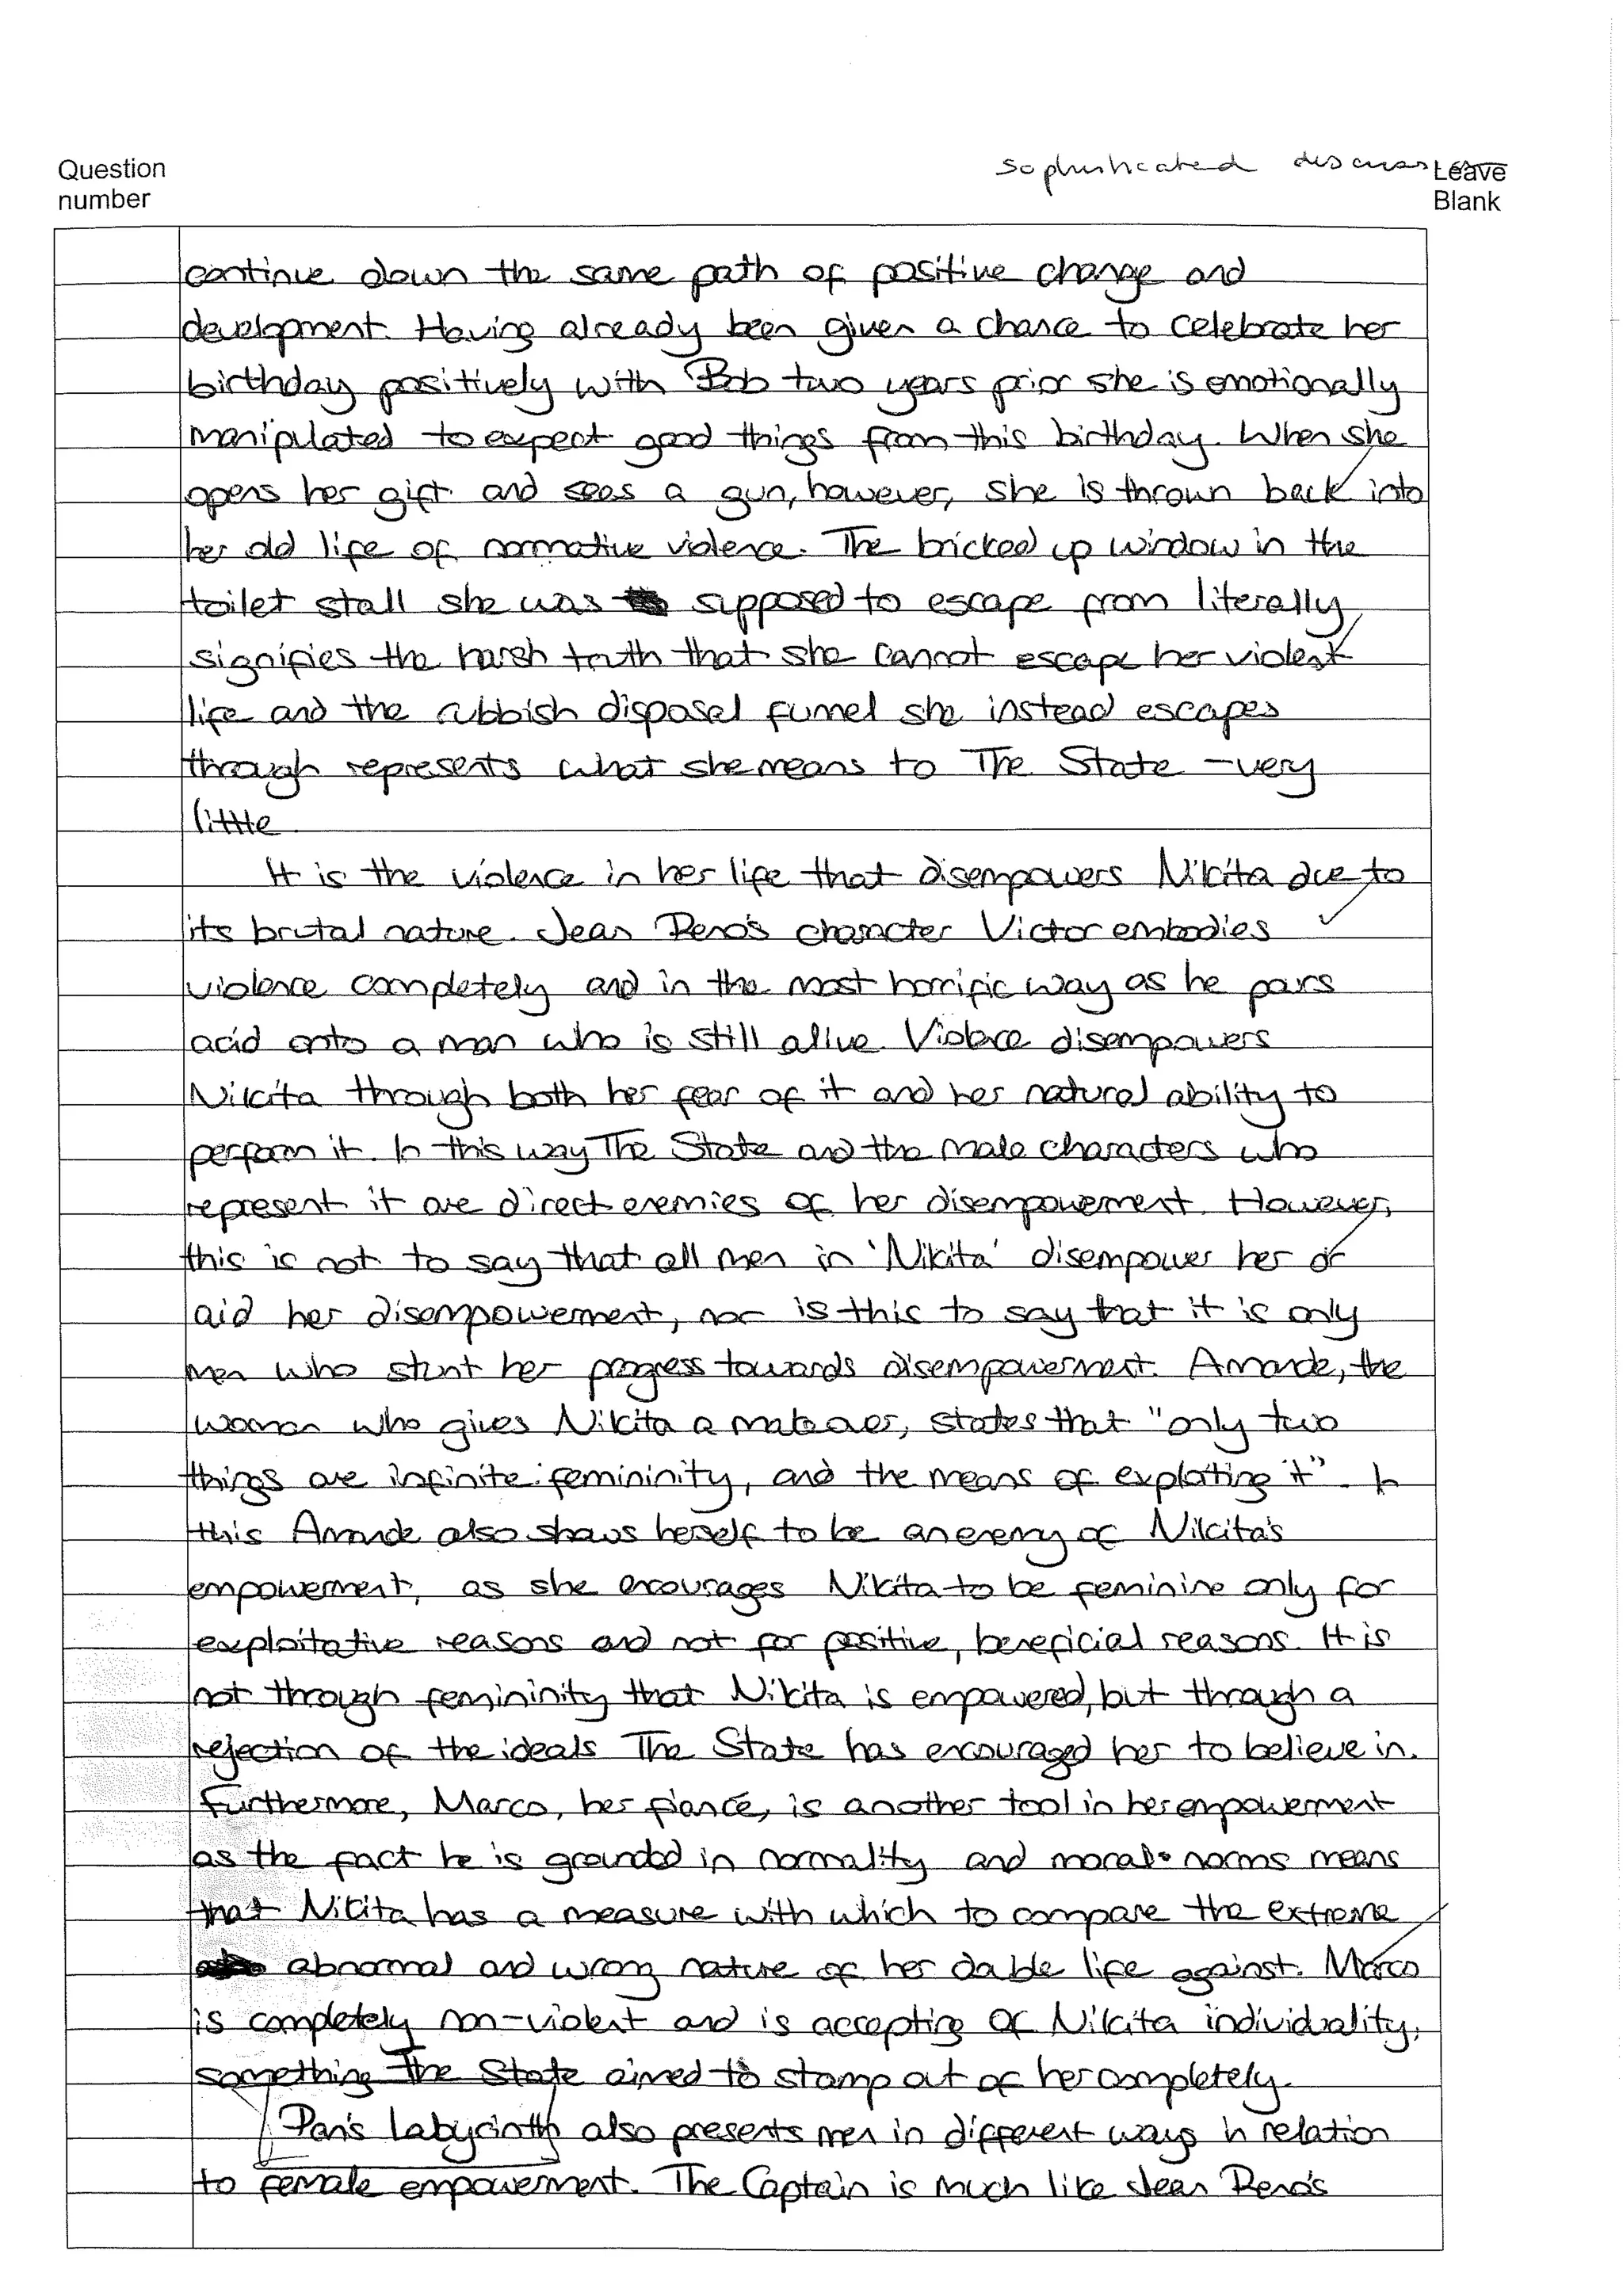 Question
number
sophisticated discuss
Leave
Blank
continue down the same path of positive change and
development. Having already been given a chance to celebrate her
birthday positively with Bob two years prior she is emotionally
manipulated to expect good things from this birthday. When she
opens her gift and sees a gun, however, she is thrown back into
her old life of normative violence. The bricked up window in the
toilet stall she was supposed to escape from literally
signifies the harsh truth that she cannot escape her violent
life and the rubbish disposal funnel she instead escapes
through represents what she means to The State – very
little.
It is the violence in her life that disempowers Nikita due to
its brutal nature. Jean Reno's character Victor embodies
violence completely and in the most horrific way as he pours
acid onto a man who is still alive. Violence disempowers
Nikita through both her fear of it and her natural ability to
perform it. In this way The State and the male characters who
represent it are direct enemies of her disempowerment. However,
this is not to say that all men in 'Nikita' disempower her or
aid her disempowerment, nor is this to say that it is only
men who stunt her progress towards disempowerment. Amande, the
woman who gives Nikita a makeover, states that "only two
things are infinite: femininity, and the means of exploiting it". In
this Amande also shows herself to be an enemy of Nikita's
empowerment, as she encourages Nikita to be feminine only for
exploitative reasons and not for positive, beneficial reasons. It is
not through femininity that Nikita is empowered, but through a
rejection of the ideals The State has encouraged her to believe in.
Furthermore, Marco, her fiancé, is another tool in her empowerment
as the fact he is grounded in normality and moral norms means
that Nikita has a measure with which to compare the extreme
abnormal and wrong nature of her double life against. Marco
is completely non-violent and is accepting of Nikita individuality,
something The State aimed to stamp out of her completely.
Pan's Labyrinth also presents men in different ways in relation
to female empowerment. The Captain is much like Jean Reno's